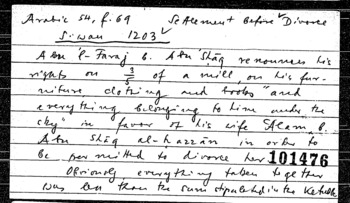 Arabic 54, f. 69 Settlement Before Divorce
Siwan 1203
Abu 'l-Faraj b. Abu Shāq renounces his
rights on 3/5 of a mill, on his fur-
niture, clothing and books "and
everything belonging to him under the
sky" in favor of his wife 'Alam b.
Abu Shāq al-hazzān in order to
be permitted to divorce her 101476
Obviously everything taken together
was less than the sum stipulated in the Ketubba